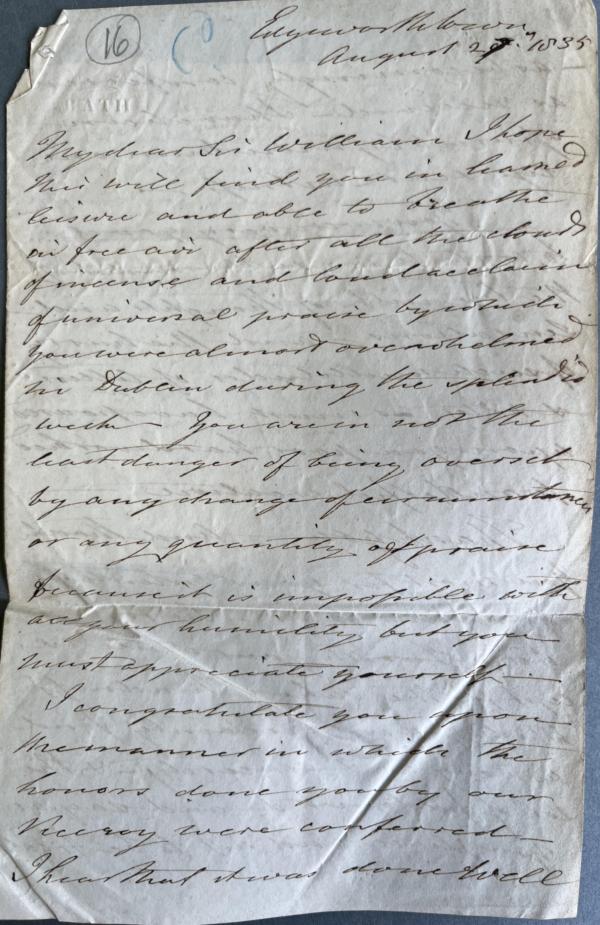 16
Edgeworthtown
August 27. 1835
BATH
My dear Sir William I hope
this will find you in learned
leisure and able to breathe
in free air after all the clouds
of incense and loud acclaim
of universal praise by which
you were almost overwhelmed
in Dublin during the splendid
week — You are in not the
least danger of being overset
by any change of circumstances
or any quantity of praise
because it is impossible with
all your humility but you
must appreciate yourself —
I congratulate you upon
the manner in which the
honors done you by our
Viceroy were conferred —
I hear that it was done well